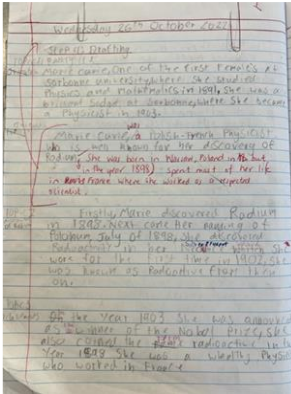 Wednesday 26th October 2022
Drafting
Marie Curie, One of the first females at
Sorbonne university where She studied
Physics and Mathematics in 1891, She was a
at Sorbonne, where She became
a Physicist in 1903.
was
Marie Curie, a Polish-French Physicist
who is well known for her discovery of
Radium. She was born in Warsaw, Poland in but
in the year 1895) spent most of her life
in France where she worked as a respected
scientist.
Firstly, Marie discovered Radium
in 1898. Next came Her naming of
Polonium, July of 1898, She discovered
in her
for the first time in 1902, She
was known as Radioactive from then
on.
the Year 1903 She was announced
as winner of the Nobel Prize, She
also coined the radioactive in
Year 1898 She was a wealthy Physi
who worked in France